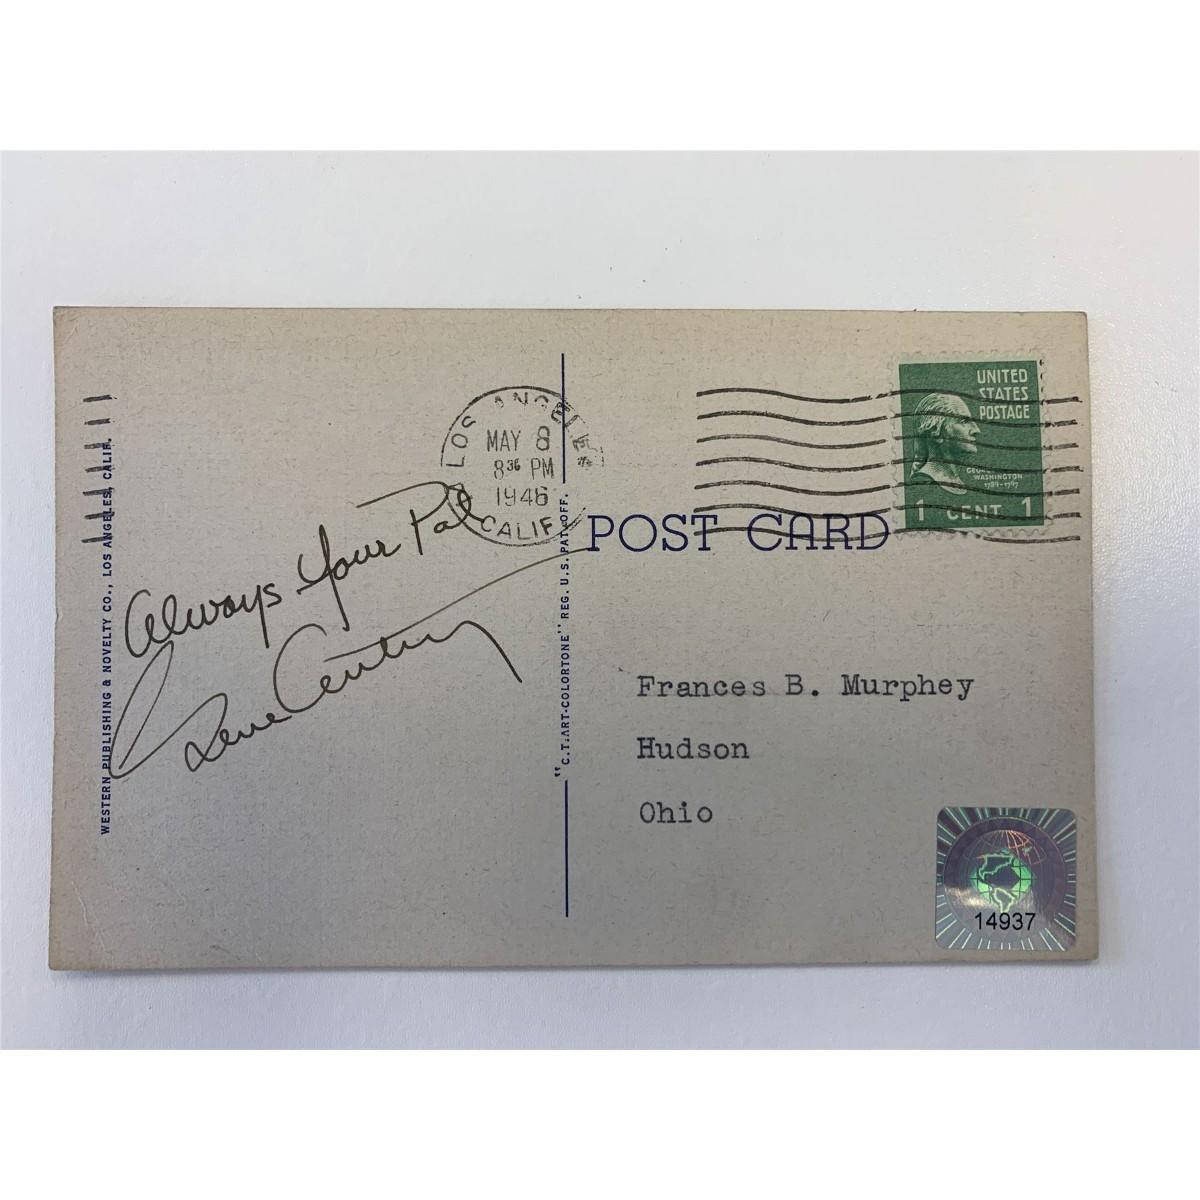 WESTERN PUBLISHING & NOVELTY CO., LOS ANGELES, CALIF.
Always Your Pal
Gene Autry
LOS ANGELES
MAY 8
8 30 PM
1946
CALIF
"C.T. ART-COLORTONE" REG. U.S. PAT. OFF.
POST CARD
UNITED
STATES
POSTAGE
GEORGE
WASHINGTON
1789-1797
1 CENT 1
Frances B. Murphey
Hudson
Ohio
14937